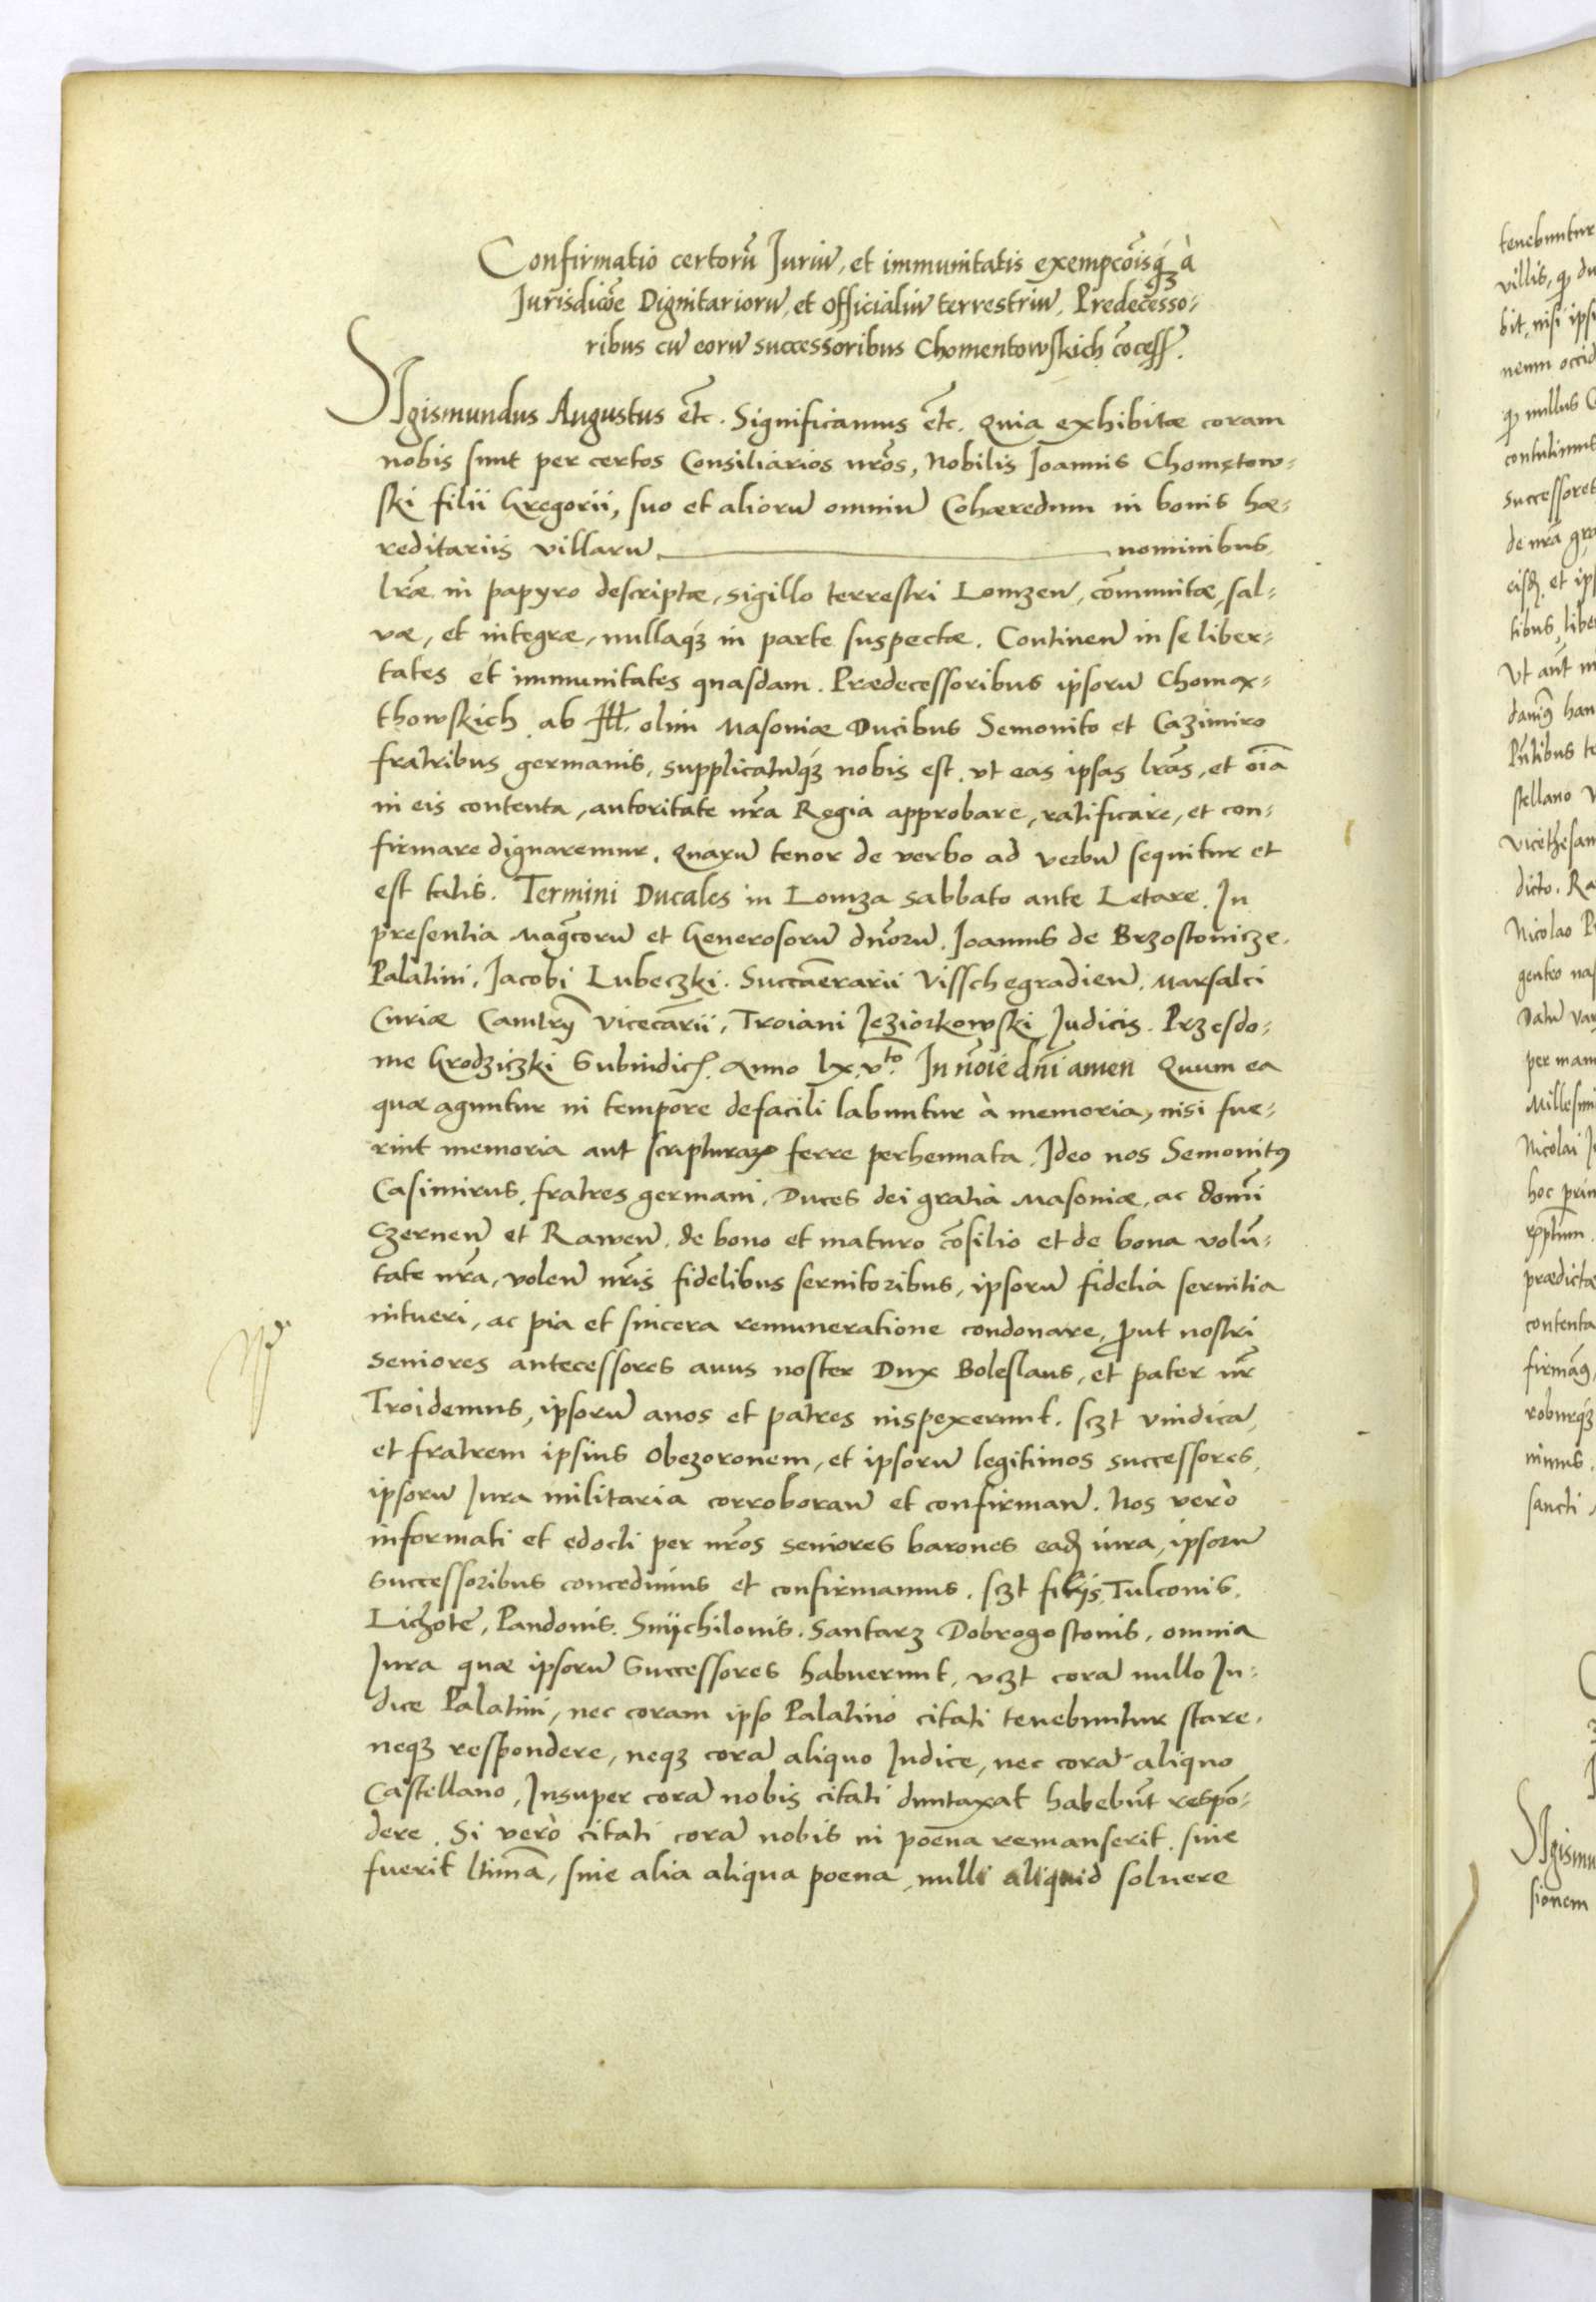 Confirmatio certorũ Juriũ, et immunitatis exempcõisq́ꝫ à
Jurisdicõe Dignitariorũ, et officialiũ terrestriũ, Predecesso-
ribus cũ eorũ successoribus Chomentowskich cõcess.
Sigismundus Augustus etc. Significamus etc. Quia exhibitæ coram
nobis sunt per certos Consiliarios nrõs, Nobilis Joannis Chomętow-
ski filii Gregorii, suo et aliorũ omniũ Cohæredum in bonis hæ-
reditariis villarũ nominibus
lrãe in papyro descriptæ, sigillo terrestri Lomzeñ, cõmunitæ, sal-
væ, et integræ, nullaq́ꝫ in parte suspectæ. Continen̄ in se liber-
tates et immunitates quasdam. Prædecessoribus ipsorũ Chomąx-
thowskich ab Ill. olim Masoniæ Ducibus Semonito et Cazimiro
fratribus germanis, supplicatũq́ꝫ nobis est, vt eas ipsas lrãs, et oĩa
in eis contenta, autoritate nrã Regia approbare, ratificare, et con-
firmare dignaremur. Quarũ tenor de verbo ad verbũ sequitur et
est talis. Termini Ducales in Lomza sabbato ante Letare. In
presentia Mag̃corũ et Generosorũ dñorũ. Joannis de Brzostonicze.
Palatini, Jacobi Lubeczki. Succam̃erarii Visschegradieñ. Marsalci
Curiæ Camtrỹ vicecam̃rii, Troiani Jeziorkowski Judicis. Przesdo-
me Grodziczki Subiudicꝭ. Anno lx.vᵗᵒ. In nõie dñi amen Quum ea
quæ aguntur in tempore defacili labuntur à memoria, nisi fue-
rint memoria aut scripturaꝝ ferre perhennata. Ideo nos Semonitꝰ
Casimirus, fratres germani, Duces dei gratia Masoniæ, ac domĩ
Czerneñ et Raweñ. de bono et maturo cõsilio et de bona volũ-
tate nrã, voleñ nrĩs fidelibus seruitoribus, ipsorũ fidelia seruitia
intueri, ac pia et sincera remuneratione condonare, ꝓut nostri
Seniores antecessores auus noster Dux Boleslaus, et pater nr̃
Troidenus, ipsorũ auos et patres inspexerunt. sczt vindicã,
et fratrem ipsius Obezoronem, et ipsorũ legitimos successores,
ipsorũ Jura militaria corroborañ et confirmañ. Nos verò
informati et edocti per nrõs seniores barones eadꝫ iura, ipsorũ
Successoribus concedimus et confirmamus. sczt filijs Tulconis.
Liczote, Pandonis. Smÿchilonis. Santarz Dobrogostonis, omnia
Jura quæ ipsorũ Successores habuerunt, vczt corã nullo Ju-
dice Palatini, nec coram ipso Palatino citati tenebuntur stare,
neqꝫ respondere, neqꝫ corã aliquo Judice, nec corã aliquo
Castellano, Insuper corã nobis citati duntaxat habebũt respõ-
dere. Si verò citati corã nobis in poena remanserit, siue
fuerit ltimã, siue alia aliqua poena, nulli aliquid soluere